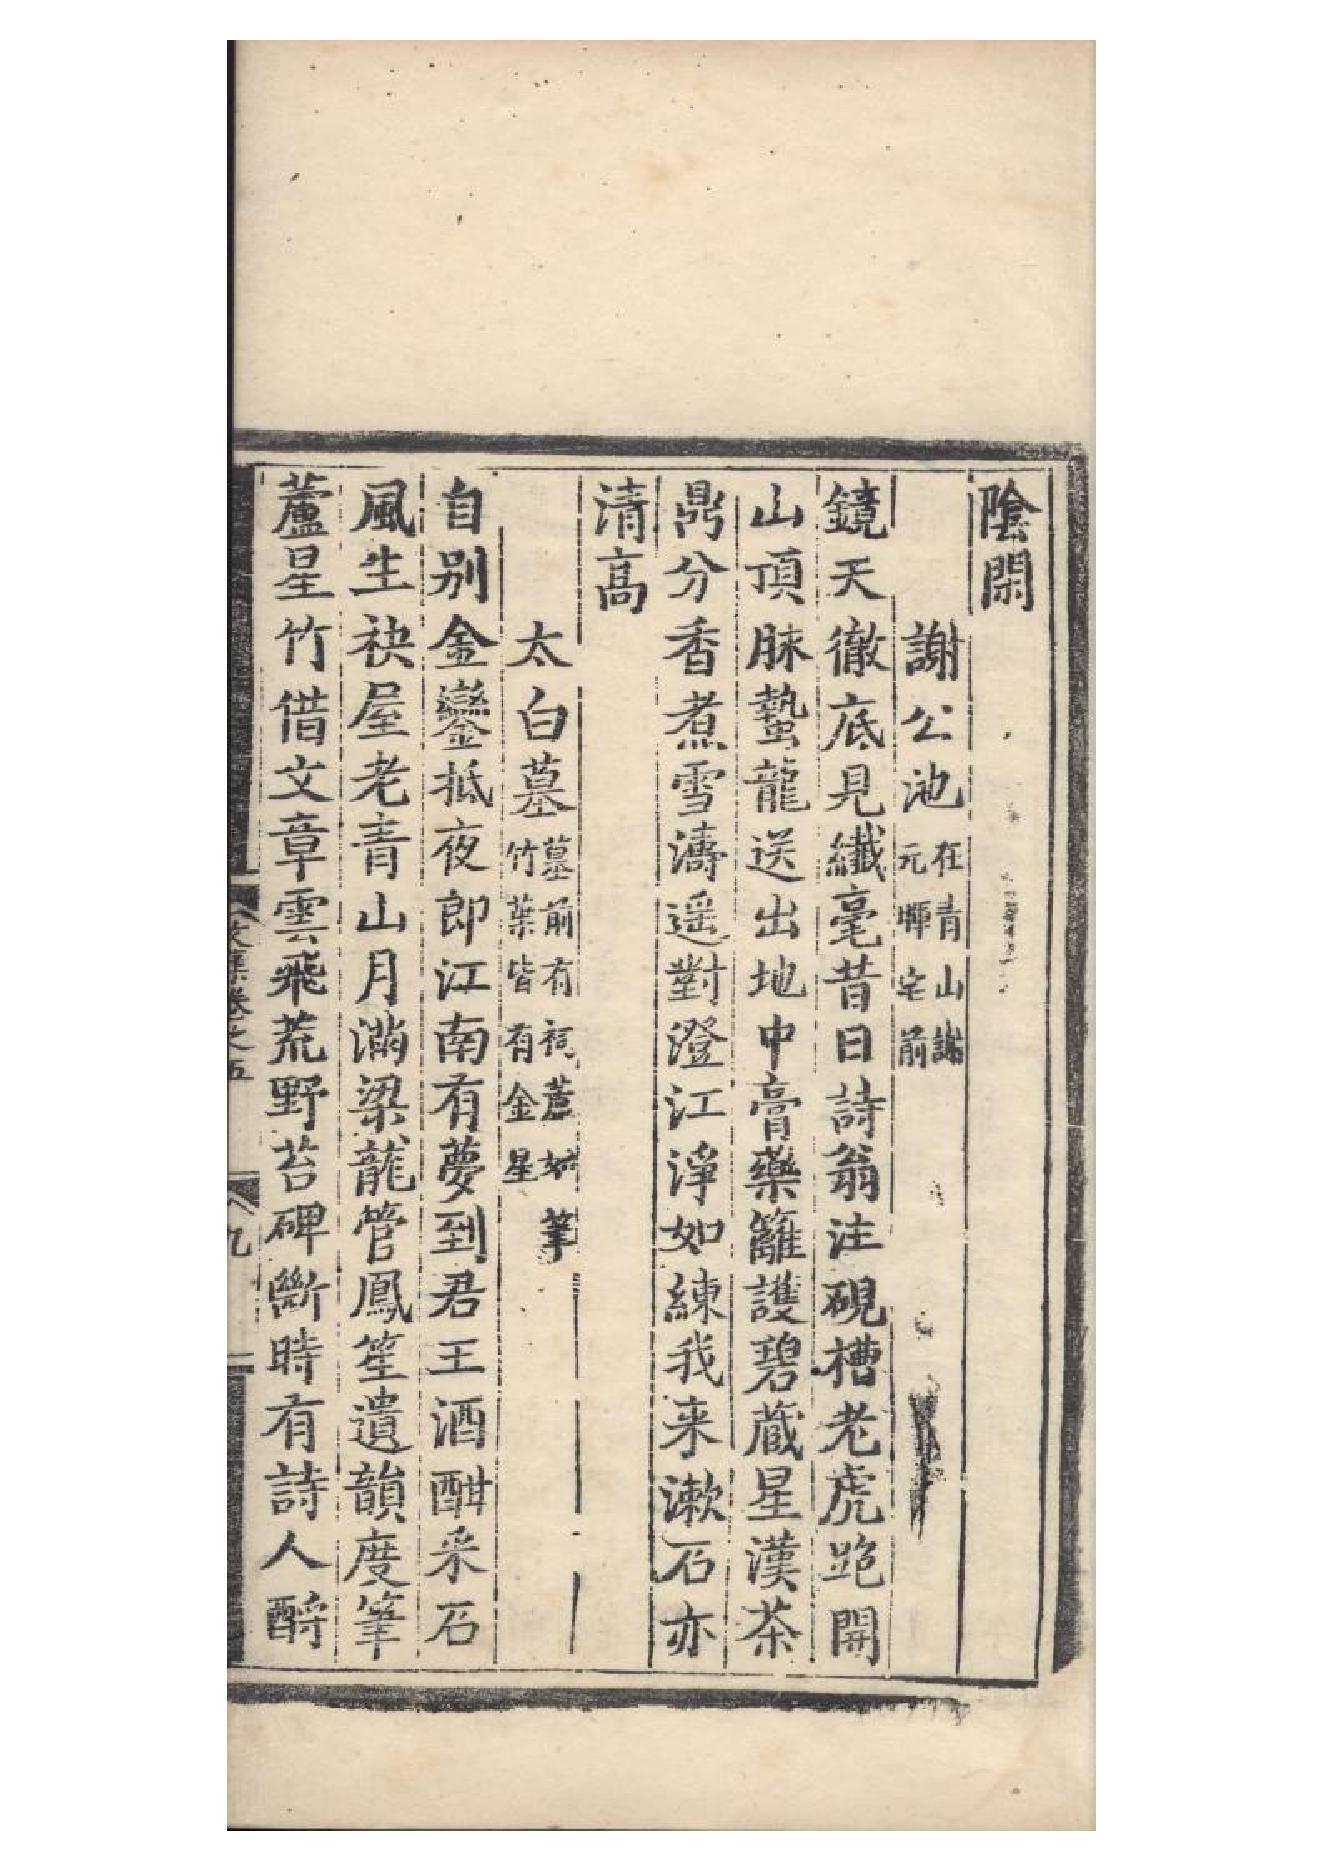 陰閑
謝公池在青山謝元暉宅前
鏡天徹底見纖毫昔日詩翁注硯槽老虎跑開
山頂脉蟄龍送出地中膏藥籬護碧蔵星漢茶
鼎分香煮雪濤遥對澄江淨如練我来漱石亦
清高
太白墓墓前有祠蘆如筆竹葉皆有金星
自别金鑾抵夜郎江南有夢到君王酒酣采石
風生袂屋老青山月滿梁龍管鳳笙遺韻度筆
蘆星竹借文章雲飛荒野苔碑斷時有詩人酹
文集卷之五
九